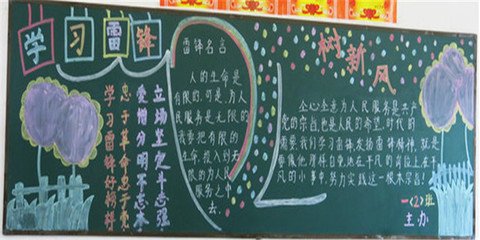 学习雷锋
树新风
学习雷锋好榜样
忠于革命忠于党
爱憎分明不忘本
立场坚定斗志强
雷锋名言
人的生命是
有限的,可是,为人
民服务是无限的,
我要把有限的
生命,投入到无
限的为人民
服务之中
去。
全心全意为人民服务是共产
党的宗旨,也是人民的希望,时代的
需要,我们学习雷锋发扬雷锋精神,就是
要像他那样自觉地在平凡的岗位上在平
凡的小事中,努力实践这一根本宗旨!
一(2)班
主办